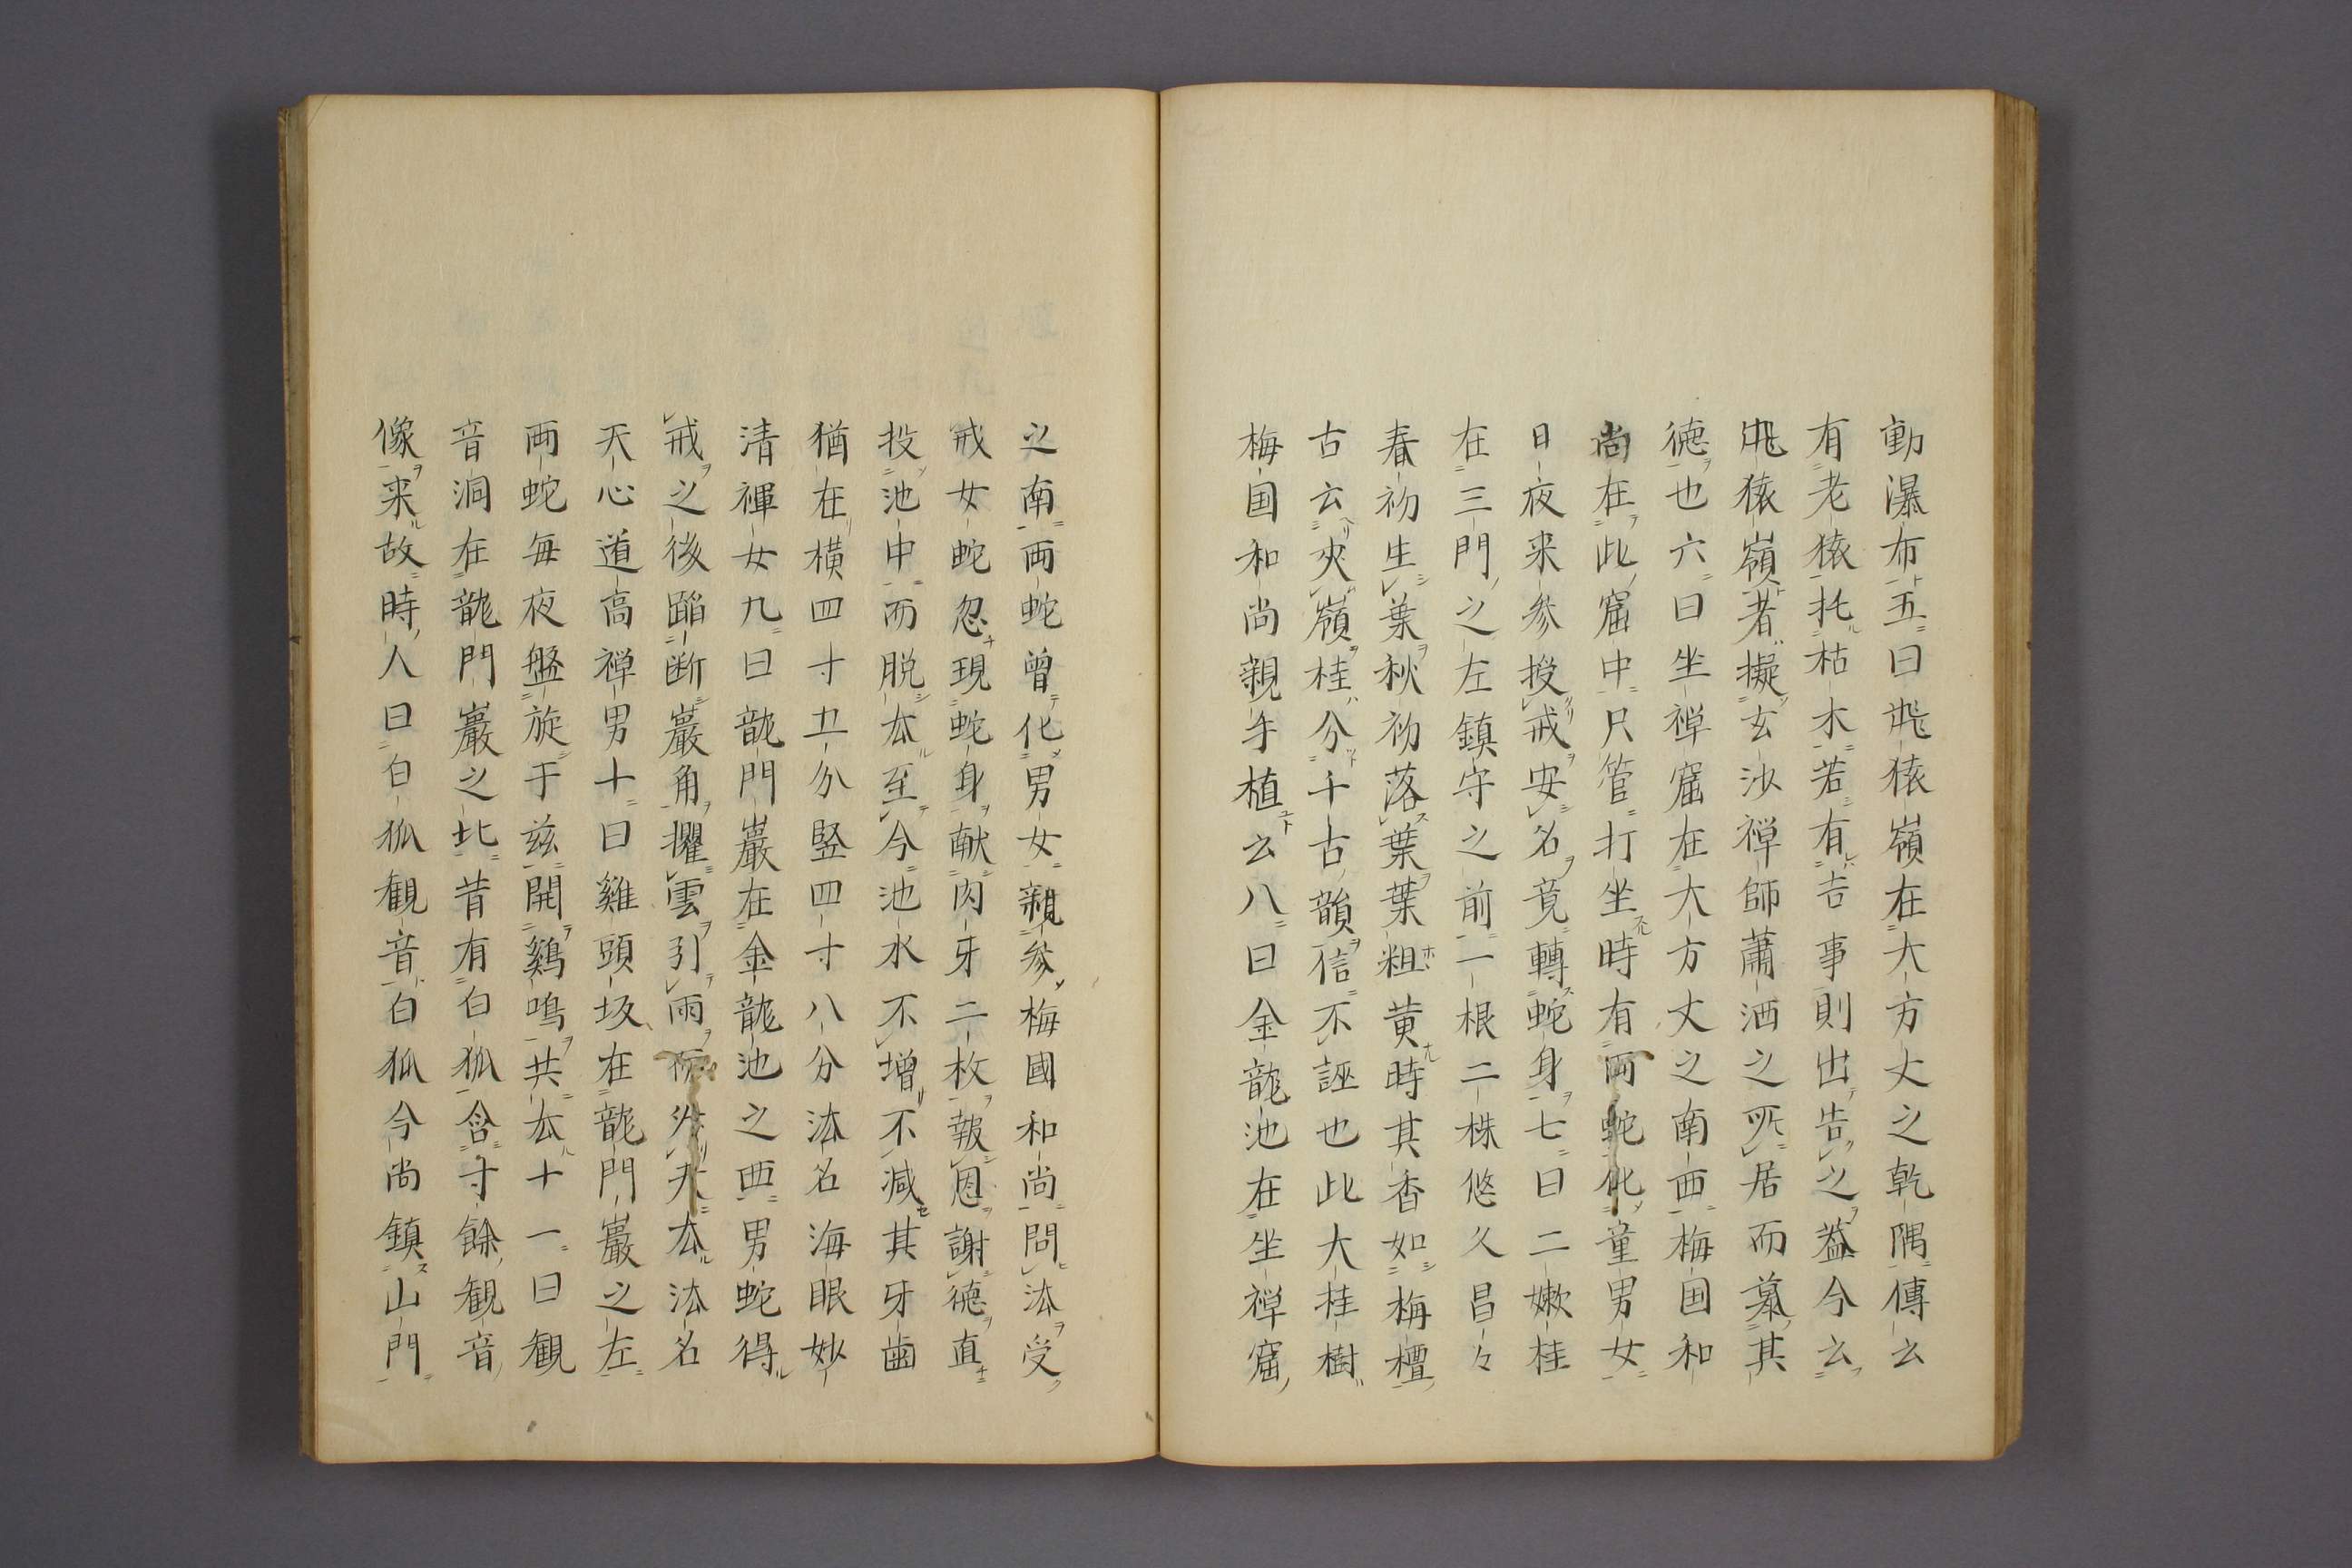 動瀑布五曰飛猿嶺在大方丈之乾隅傳云
有老猿托枯木若有吉事則出告之蓋今云
飛猿嶺者擬玄沙禅師蕭洒之所居而慕其
徳也六曰坐禅窟在大方丈之南西梅国和
尚在此窟中只管打坐時有両蛇化童男女
日夜来参授戒安名竟轉蛇身七曰二嫩桂
在三門之左鎮守之前一根二株悠久昌々
春初生葉秋初落葉葉粗黄時其香如梅檀
古云夾嶺桂分千古韻信不誣也此大桂樹
梅国和尚親手植云八曰金龍池在坐禅窟
之南両蛇曽化男女親参梅國和尚問法受
戒女蛇忽現蛇身献肉牙二枚報恩謝徳直
投池中而脱去至今池水不増不減其牙歯
猶在横四寸五分竪四寸八分法名海眼妙
清禅女九曰龍門巖在金龍池之西男蛇得
戒之後蹈断巖角攫雲引雨天去法名
天心道高禅男十曰雞頭坂在龍門巖之左
両蛇毎夜盤旋于茲開鷄鳴共去十一曰観
音洞在龍門巖之北昔有白狐含寸餘観音
像来故時人曰白狐観音白狐今尚鎮山門